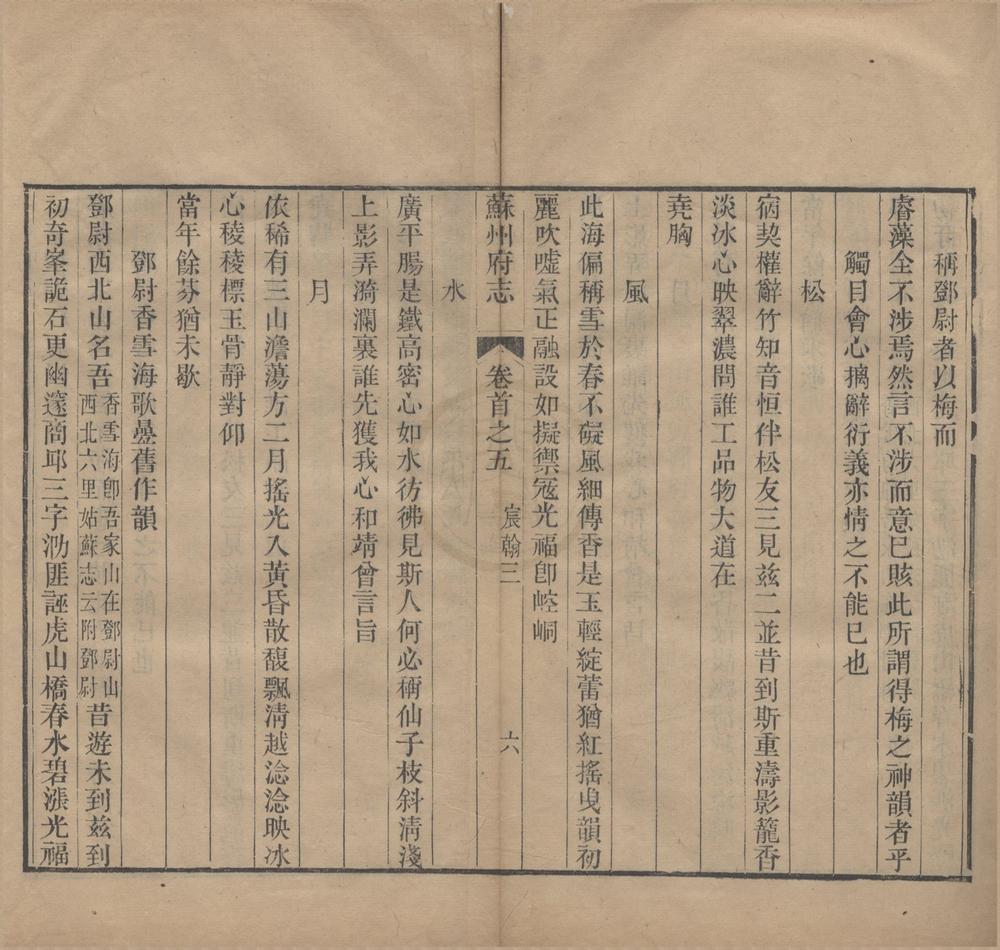 稱鄧尉者以梅而
睿藻全不涉焉然言不涉而意已賅此所謂得梅之神韻者乎
觸目會心摛辭衍義亦情之不能已也
松
宿契權辭竹知音恒伴松友三見兹二並昔到斯重濤影籠香
淡冰心映翠濃問誰工品物大道在
堯胸
風
此海偏稱雪於春不礙風細傳香是玉輕綻蕾猶紅搖曳韻初
麗吹噓氣正融設如擬禦冦光福卽崆峒
蘇州府志 卷首之五 宸翰三 六
水
廣平腸是鐵高密心如水彷彿見斯人何必稱仙子枝斜清淺
上影弄漪瀾裏誰先獲我心和靖曾言旨
月
依稀有三山澹蕩方二月搖光入黃昏散馥飄清越淰淰映冰
心稜稜標玉骨靜對仰
當年餘芬猶未歇
鄧尉香雪海歌疊舊作韻
鄧尉西北山名吾香雪海卽吾家山在鄧尉山西北六里姑蘇志云附鄧尉昔遊未到兹到
初奇峯詭石更幽邃商邱三字泐匪誣虎山橋春水碧漲光福